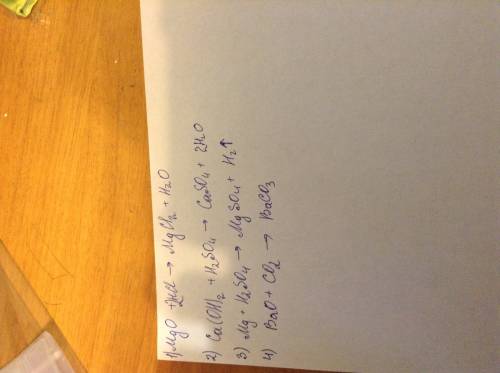 1) MgO + 2HCl → MgCl₂ + H₂O
2) Ca(OH)₂ + H₂SO₄ → CaSO₄ + 2H₂O
3) Mg + H₂SO₄ → MgSO₄ + H₂↑
4) BaO + CO₂ → BaCO₃